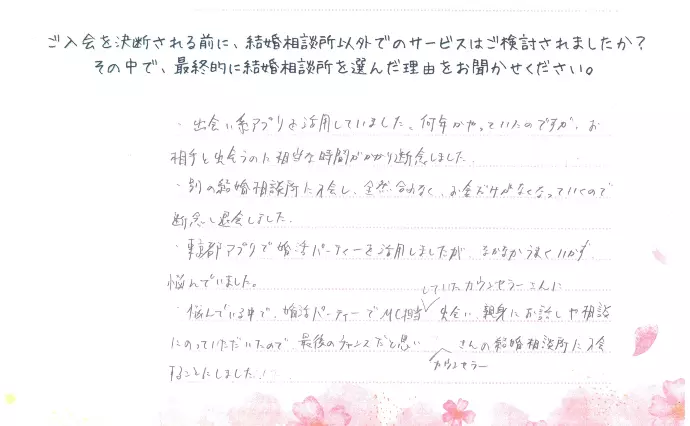 ご入会を決断される前に、結婚相談所以外でのサービスはご検討されましたか？
その中で、最終的に結婚相談所を選んだ理由をお聞かせください。
・出会い系アプリを活用していました。何年かやっていたのですが、お
相手と出会うのに相当な時間がかかり断念しました。
・別の結婚相談所に入会し、全然合わなく、お金だけがなくなっていくので
断念し退会しました。
・東京都アプリで婚活パーティーを活用しましたが、なかなかうまくいかず
悩んでいました。
していたカウンセラーさんに
・悩んでいる中で、婚活パーティーでMC担当 出会い、親身にお話しや相談
にのっていただいたので、最後のチャンスだと思い さんの結婚相談所に入会
カウンセラー
することにしました！